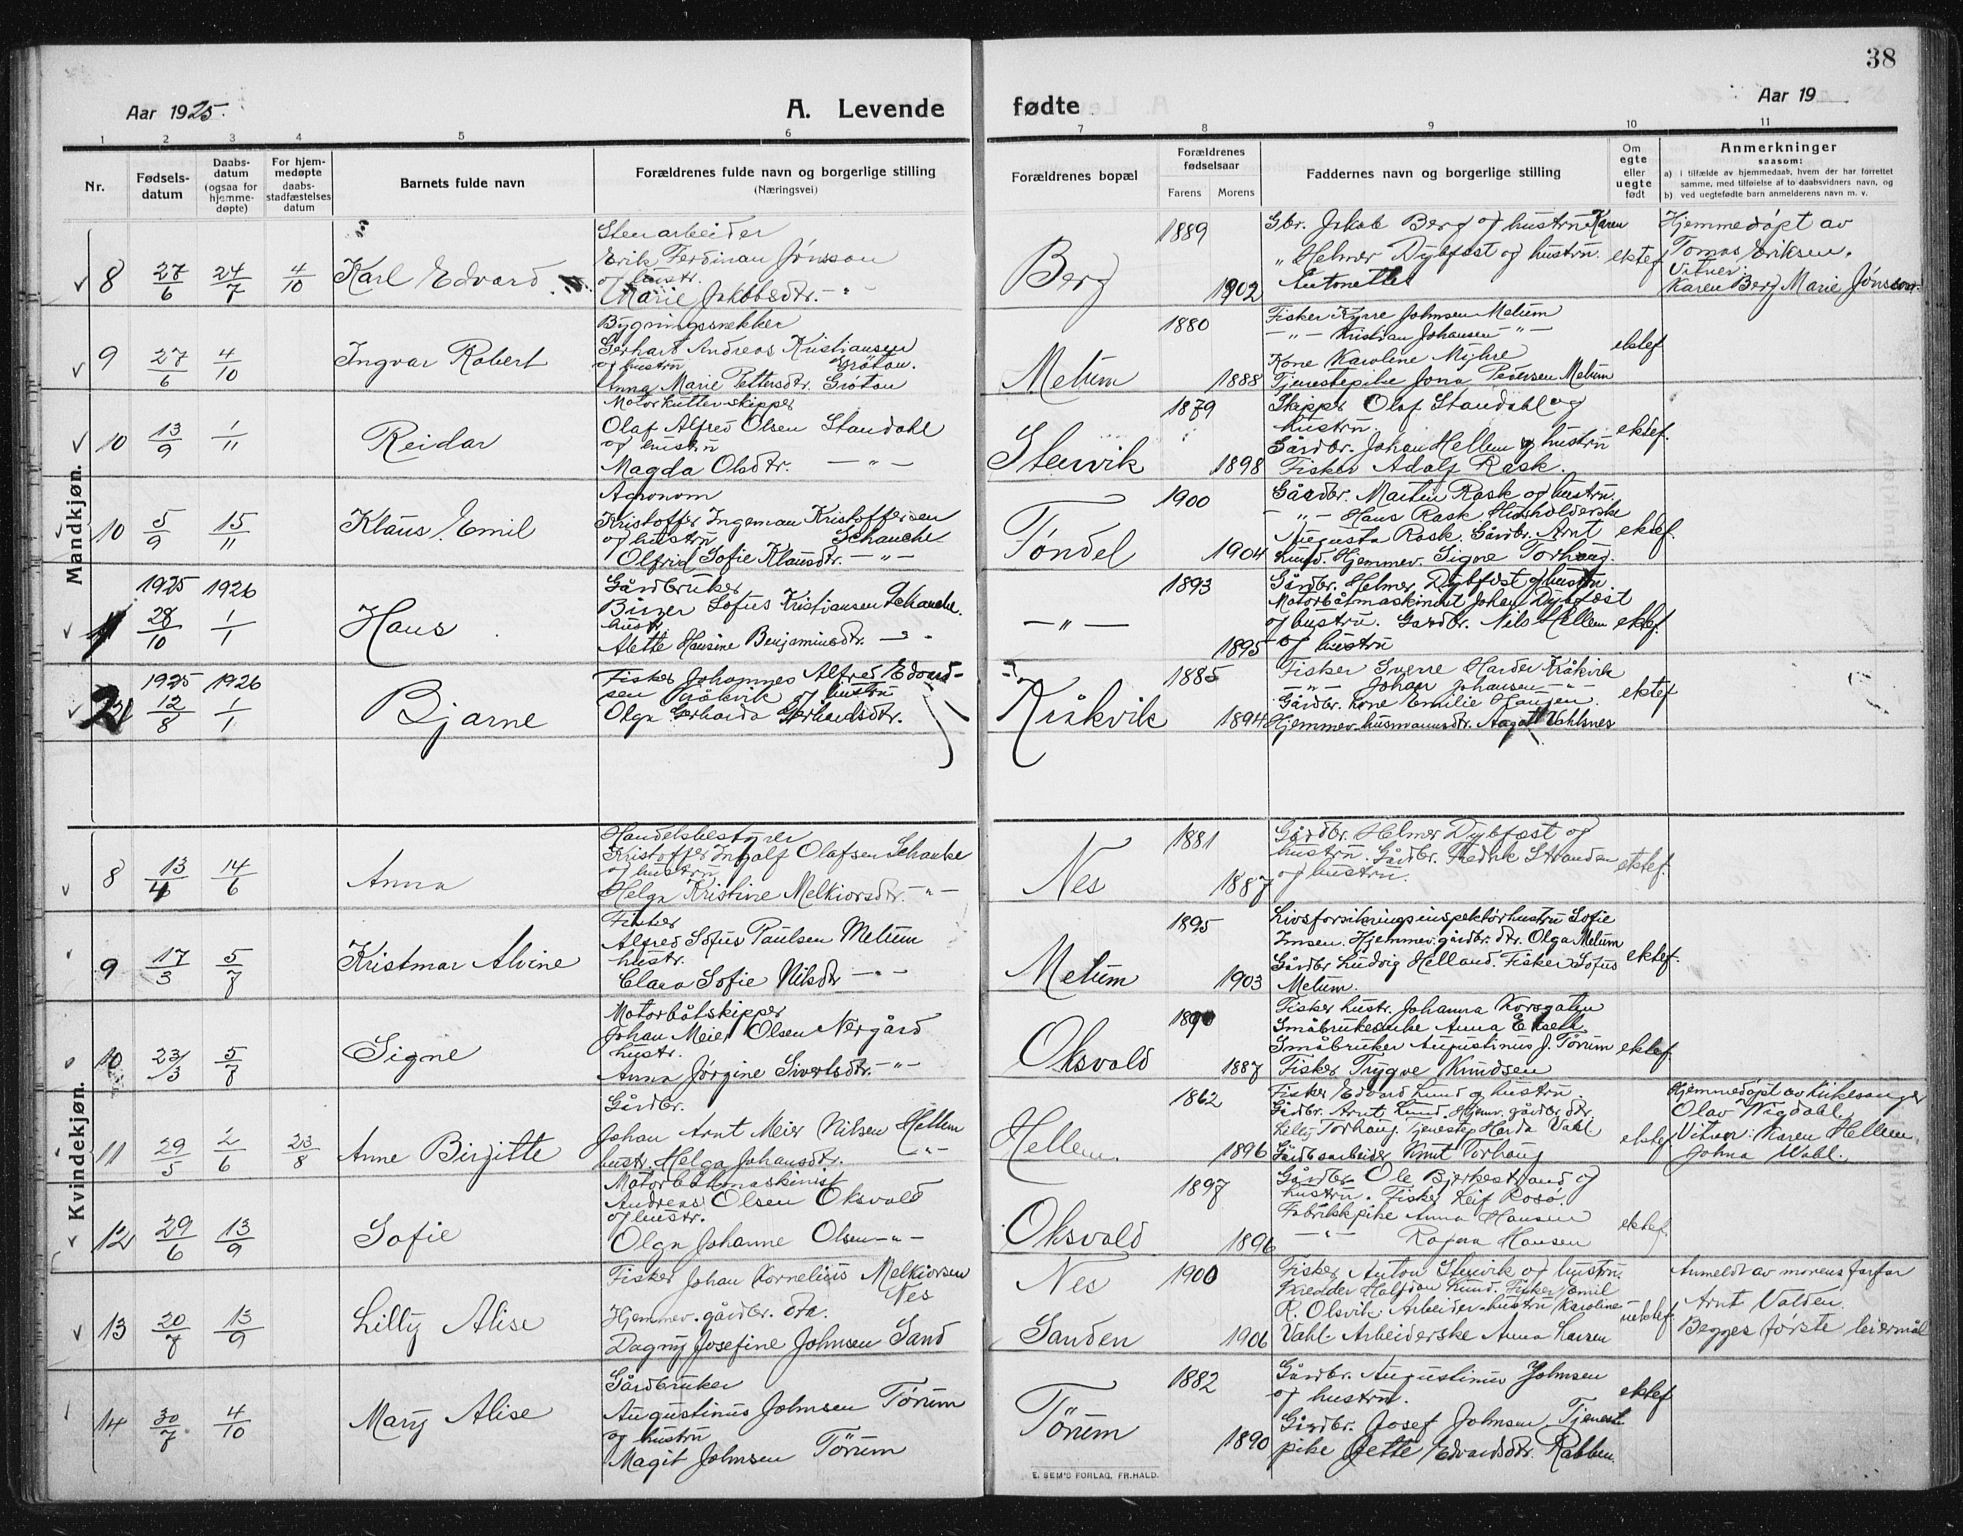 38
Aar 1925.
A. Levende
fødte
Aar 19
1 2 3 4 5 6 7 8 9 10 11
Nr.
Fødsels-
datum
Daabs-
datum
(ogsaa for
hjemme-
døpte)
For hjem-
medøpte
daabs-
stadfæstelses
datum
Barnets fulde navn
Forældrenes fulde navn og borgerlige stilling
(Næringsvei)
Forældrenes bopæl
Forældrenes
fødselsaar
Farens Morens
Faddernes navn og borgerlige stilling
Om
egte
eller
uegte
født
Anmerkninger
saasom:
a) i tilfælde av hjemmedaab, hvem der har forrettet
samme, med tilføielse af to daabsvidners navn, og
b) ved uegtefødte barn anmelderens navn m. v.
Mandkjøn.
8 27/6 24/7 4/10 Karl Edvard
Stenarbeider
Erik Ferdinan Jönsson
og hustr.
Marie Jakobsdtr. - " -
Berg
1889
1902
Gbr. Jakob Berg og hustru Karen
" Helmer Dybfest og hustru
Antonette
ektef
Hjemmedøpt av
Tomas Eriksen.
Vitner:
Karen Berg Marie Jönsson.
9 27/6 4/10 Ingvar Robert
Bygningssnekker
Gerhart Andreas Kristiansen
og hustru Grötan.
Anna Marie Pettersdtr. Grötan
Melum
1880
1888
Fisker Kyrre Johnsen Melum
- " - Kristian Johansen - " -
Kone Karoline Myhre
Tjenestepike Jona Pedersen Melum
ektef
10 13/9 1/11 Reidar
Motorkutterskipper
Olaf Alfred Olsen Standahl
og hustru
Magda Olsdtr. - " -
Stenvik
1879
1898
Skipper Olaf Standahl og
hustru.
Gårdbr. Johan Hellem og hustru
Fisker Adolf Rask.
ektef.
10 5/9 15/11 Klaus Emil
Agronom
Kristoffer Ingeman Kristoffersen
og hustru Schanche
Olfrid Sofie Klausdtr. - " -
Töndel
1900
1904
Gårdbr. Martin Rask og hustru.
- " - Hans Rask Husholderske
Augusta Rask. Gårdbr. Arnt
Lund. Hjemmev. Signe Torhaug.
ektef.
1925 1926
11 28/10 1/1 Hans
Gårdbruker
Birger Sofus Kristiansen Schanche.
hustr.
Alette Hansine Benjaminsdtr. - " -
- " -
1893
1895
Gårdbr. Helmer Dybfest og hustru.
Motorbåtmaskinist Johan Dybfest
og hustru. Gardbr. Nils Hellem
og hustru
ektef.
1925 1926
12 12/8 1/1 Bjarne
Fisker Johannes Alfred Edvard-
sen Kråkvik og hustru
Olga Gerharda Gerhardsdtr.
Kråkvik
1885
1894
Fisker Sverre Harder Kråkvik
- " - Johan Johansen - " -
Gårdbr. kone Emilie Hansen.
Hjemmev. husmannsdtr. Aagot Vahlsnes
ektef
Kvindekjøn.
8 13/4 14/6 Anna
Handelsbestyrer
Kristoffer Ingolf Olafsen Schanke
og hustru
Helga Kristine Melkiorsdtr. - " -
Nes
1881
1887
Gårdbr. Helmer Dybfest og
hustru. Gårdbr. Fredrik Stranden
og hustru.
ektef.
9 17/3 5/7 Kristmar Alvine
Fisker
Alfred Sofus Paulsen Melum
hustr.
Clara Sofie Nilsdtr - " -
Melum
1895
1903
Livsforsikringsinspektörhustru Sofie
Imsen. Hjemmev. gårdbr. dtr. Olga Melum
Gårdbr Ludvig Helland. Fisker Sofus
Melum.
ektef.
10 23/3 5/7 Signe
Motorbåtskipper
Johan Meier Olsen Nergård
hustr.
Anna Jörgine Sivertsdtr. - " -
Oksvold
1890
1887
Fisker hustr. Johanna Korsgaten
Småbrukerenke Anna Eksett
Småbruker Augustinus J. Törum
Fisker Trygve Knudsen
ektef.
11 29/5 2/6 23/8 Anne Birgitte
Gårdbr.
Johan Arnt Meier Nilsen Hellem
hustr. Helga Johansdtr. - " -
Hellem.
1862
1896
Fisker Edvard Lund og hustru.
Gårdbr. Arnt Lund. Hjemv. gårdbr. dtr.
Lilly Torhaug. Tjenestep Harda Vahl
Gårdbsarbeider Knut Torhaug
ektef
Hjemmedøpt av kirkesanger
Olav Vigdahl.
Vitner: Karen Hellem
Johna Wahl.
12 29/6 13/9 Sofie
Motorbåtmaskinist
Andreas Olsen Oksvold
og hustr.
Olga Johanne Olsen - " -
Oksvold
1897
1896
Gårdbr. Ole Bjerkestrand og
hustru. Fisker Leif Rosö
Fabrikkpike Anna Hansen
- " - Ragna Hansen
ektef.
13 20/7 13/9 Lilly Alise
Fisker Johan Kornelius Melkiorsen
Nes
Hjemmev. gårdbr. dtr.
Dagny Josefine Johnsen Sand
Nes
Sanden
1900
1906
Fisker Anton Stenvik og hustru.
Kredder Halfdan Lund. Fisker Emil
R. Olsvik. Arbeider-hustru Karoline
Vahl Arbeiderske Anna Larsen
uektef.
Anmeldt av morens farfar
Arnt Valden.
Begges første leiermål
14 30/7 4/10 Mary Alise
Gårdbruker
Augustinus Johnsen Törum
og hustru
Magit Johnsen Törum
Törum
1882
1890
Gårdbr. Augustinus Johnsen
og hustru.
Gårdbr. Josef Johnsen Tjenest
pike Jette Edvardsdtr. Rabben.
ektef
E. SEM'S FORLAG, FR.HALD.